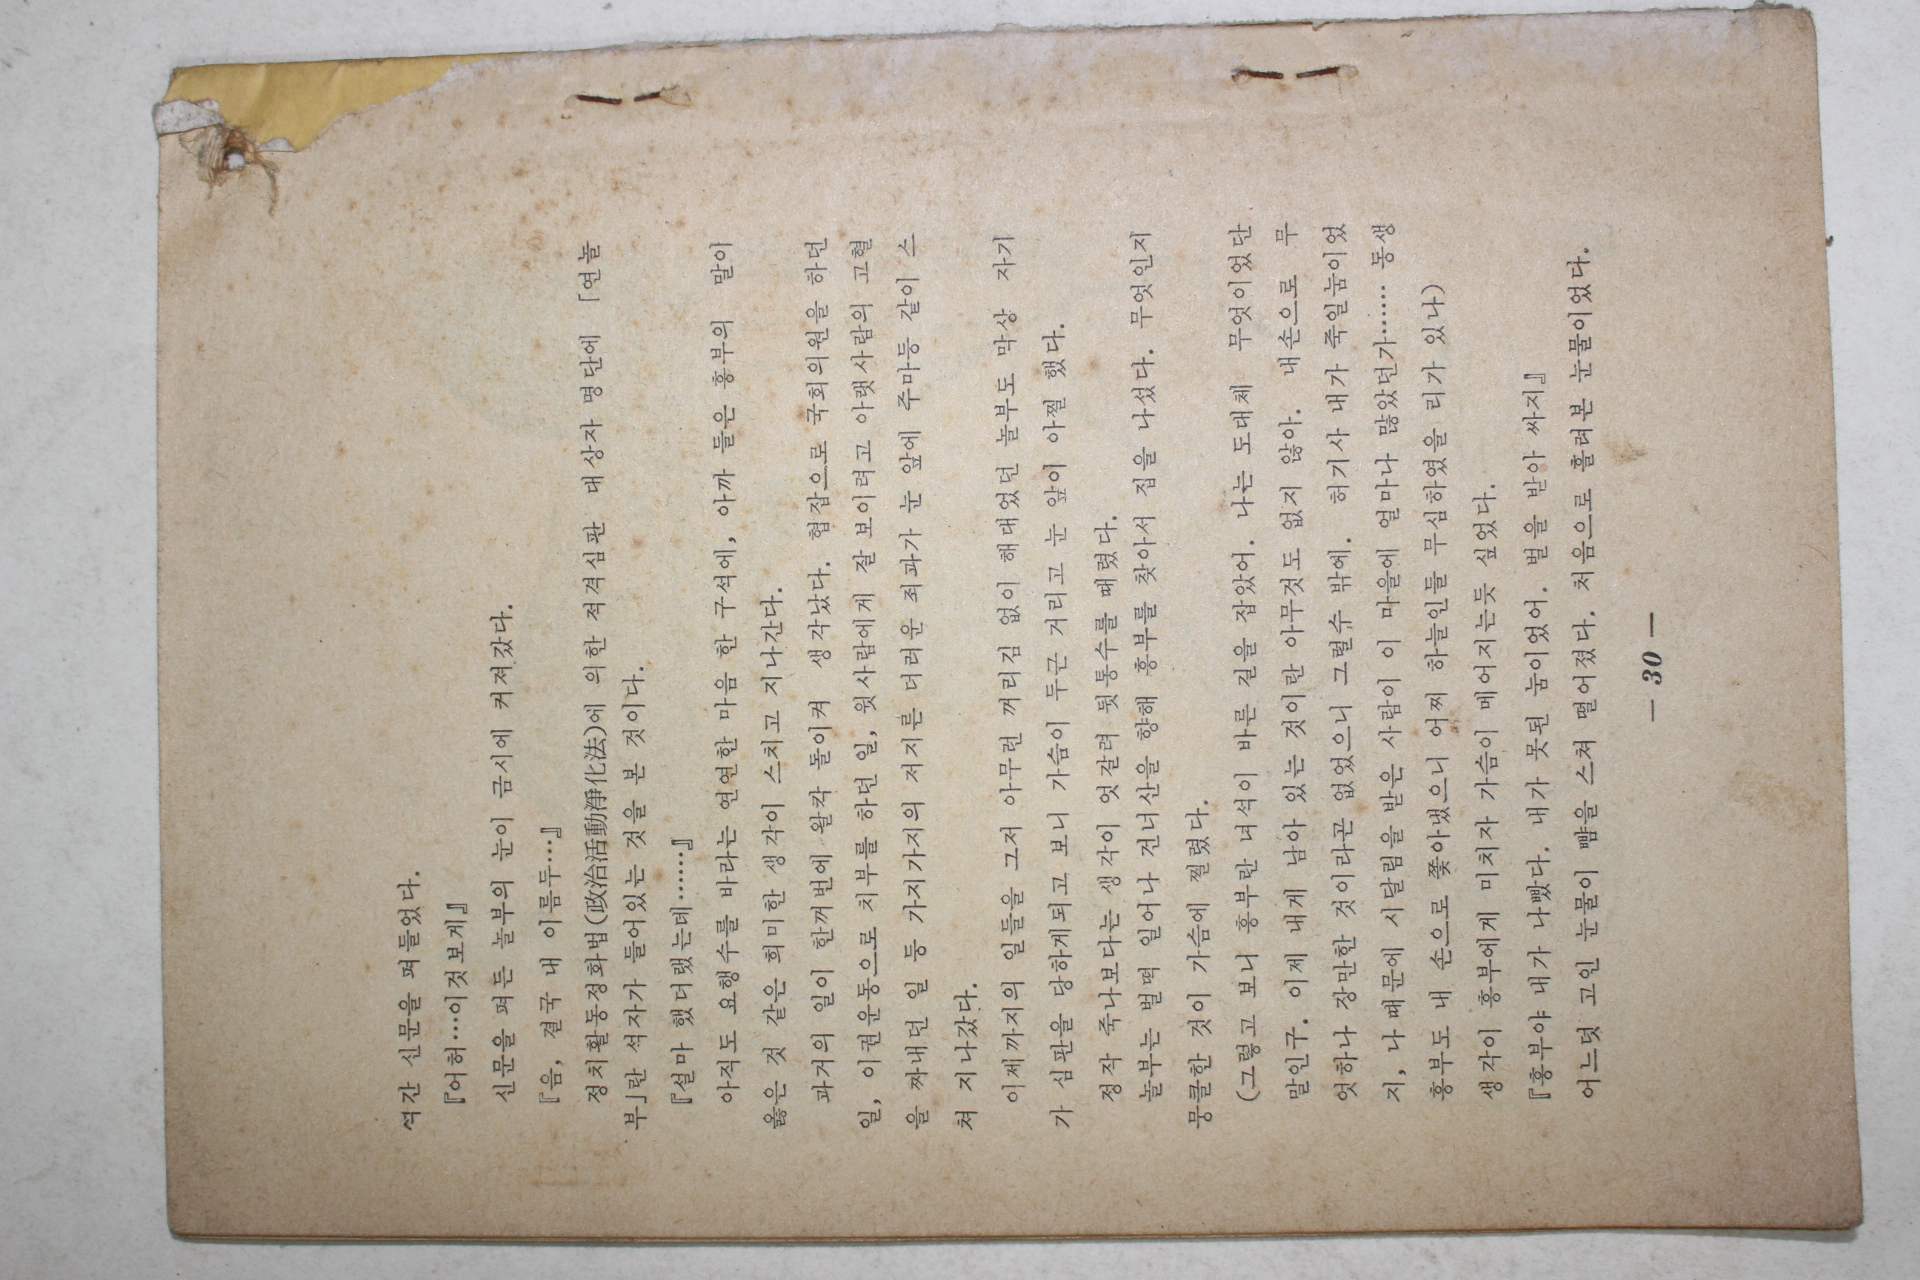 석간 신문을 펴들었다.
『어허…이것보게』
신문을 펴든 놀부의 눈이 금시에 커져갔다.
『음, 결국 내 이름두…』
정치활동정화법(政治活動淨化法)에 의한 적격심판 대상자 명단에 「연놀
부」란 석자가 들어있는 것을 본 것이다.
『설마 했더랬는데……』
아직도 요행수를 바라는 연연한 마음 한 구석에, 아까 들은 흥부의 말이
옳은 것 같은 희미한 생각이 스치고 지나간다.
과거의 일이 한꺼번에 왈칵 돌이켜 생각났다. 협잡으로 국회의원을 하던
일, 이권운동으로 치부를 하던 일, 윗사람에게 잘 보이려고 아랫사람의 고혈
을 짜내던 일 등 가지가지의 저지른 더러운 죄과가 눈 앞에 주마등 같이 스
쳐 지나갔다.
이제까지의 일들을 그저 아무런 꺼리김 없이 해대었던 놀부도 막상 자기
가 심판을 당하게되고 보니 가슴이 두근 거리고 눈 앞이 아찔 했다.
정작 죽나보다는 생각이 엇갈려 뒷통수를 때렸다.
놀부는 벌떡 일어나 건너산을 향해 흥부를 찾아서 집을 나섰다. 무엇인지
뭉클한 것이 가슴에 찔렸다.
(그렇고 보니 흥부란 녀석이 바른 길을 잡았어. 나는 도대체 무엇이었단
말인구. 이제 내게 남아 있는 것이란 아무것도 없지 않아. 내손으로 무
엇하나 장만한 것이라곤 없었으니 그럴수 밖에. 허기사 내가 죽일놈이었
지, 나 때문에 시달림을 받은 사람이 이 마을에 얼마나 많았던가…… 동생
흥부도 내 손으로 쫓아냈으니 어찌 하늘인들 무심하였을 리가 있나)
생각이 흥부에게 미치자 가슴이 메어지는듯 싶었다.
『흥부야 내가 나빴다. 내가 못된 놈이었어. 벌을 받아 싸지』
어느덧 고인 눈물이 뺨을 스쳐 떨어졌다. 처음으로 흘려본 눈물이었다.
— 30 —